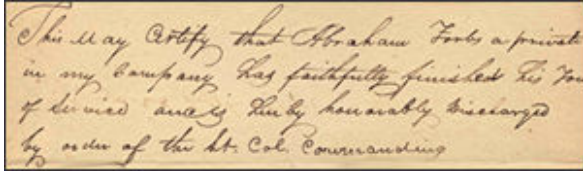 This May Certify that Abraham Forbs a private
in my Company has faithfully finished his Tou
of Service and is hereby honorably Discharged
by order of the Lt. Col. Commanding